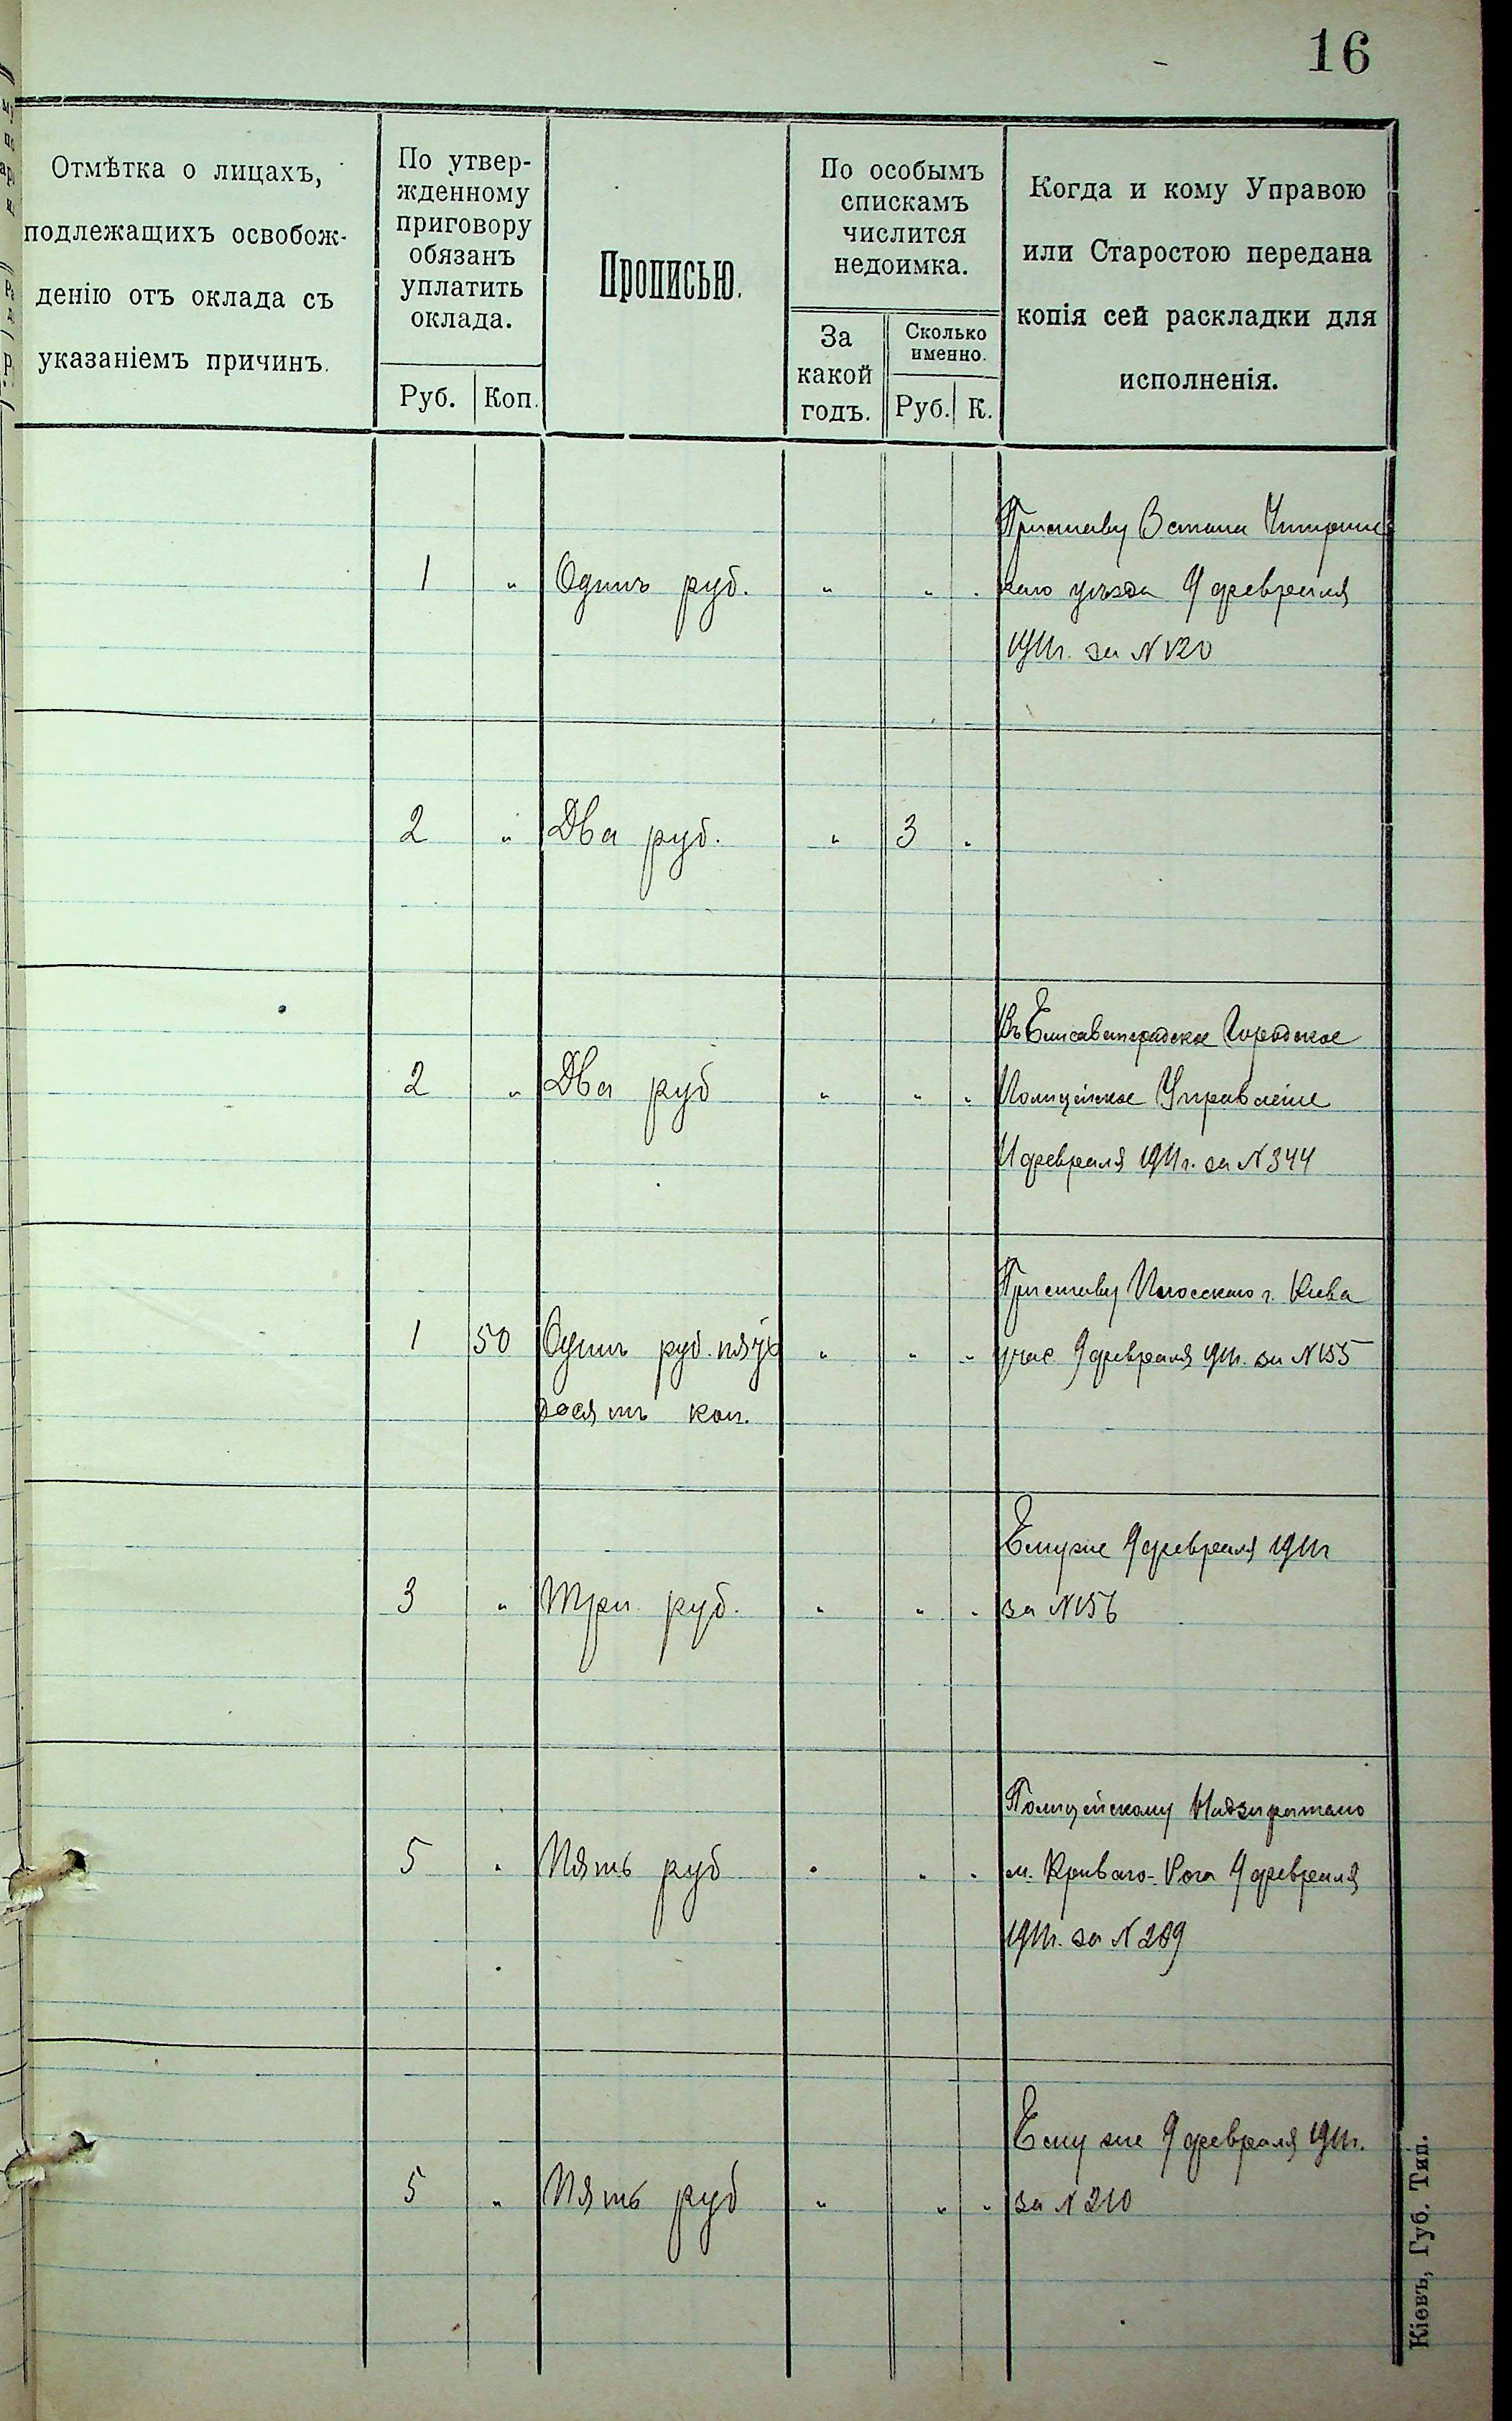 16
Отмѣтка о лицахъ,
подлежащихъ освобож-
денію отъ оклада съ
указаніемъ причинъ.
По утвер-
жденному
приговору
обязанъ
уплатить
оклада.
Руб. Коп.
Прописью.
По особымъ
спискамъ
числится
недоимка.
За
какой
годъ.
Сколько
именно.
Руб. К.
Когда и кому Управою
или Старостою передана
копія сей раскладки для
исполненія.
Приставу 3 стана Чигиринс
1 " Одинъ руб. " " " каго уѣзда 9 февраля
1911г. за N 120
2 " Два руб. " 3 "
Въ Елисаветградское Городское
2 " Два руб " " " Полицейское Управленіе
11 февраля 1911 г. за N 344
Приставу Плосскаго г. Кіева
1 50 Одинъ руб. пять " " " учас. 9 февраля 1911. за N 155
десятъ коп.
Ему же 9 февраля 1911г
3 " Три руб. " " " за N 156
Полицейскому Надзирателю
5 " Пять руб " " " м. Криваго-Рога 9 февраля
1911г. за N 209
Ему же 9 февраля 1911г.
5 " Пять руб " " " за N 210
Кіевъ, Губ. Тип.